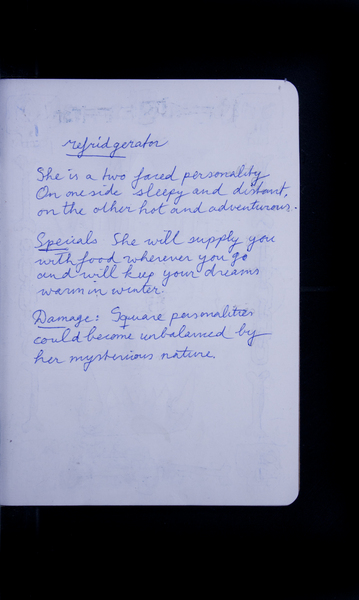 refridgerator
She is a two faced personality
On one side sleepy and distant,
on the other hot and adventurous.
Speicals She will supply you
with food wherever you go
and will keep your dreams
warm in winter.
Damage: Square personalities
could become unbalanced by
her mysterious nature.